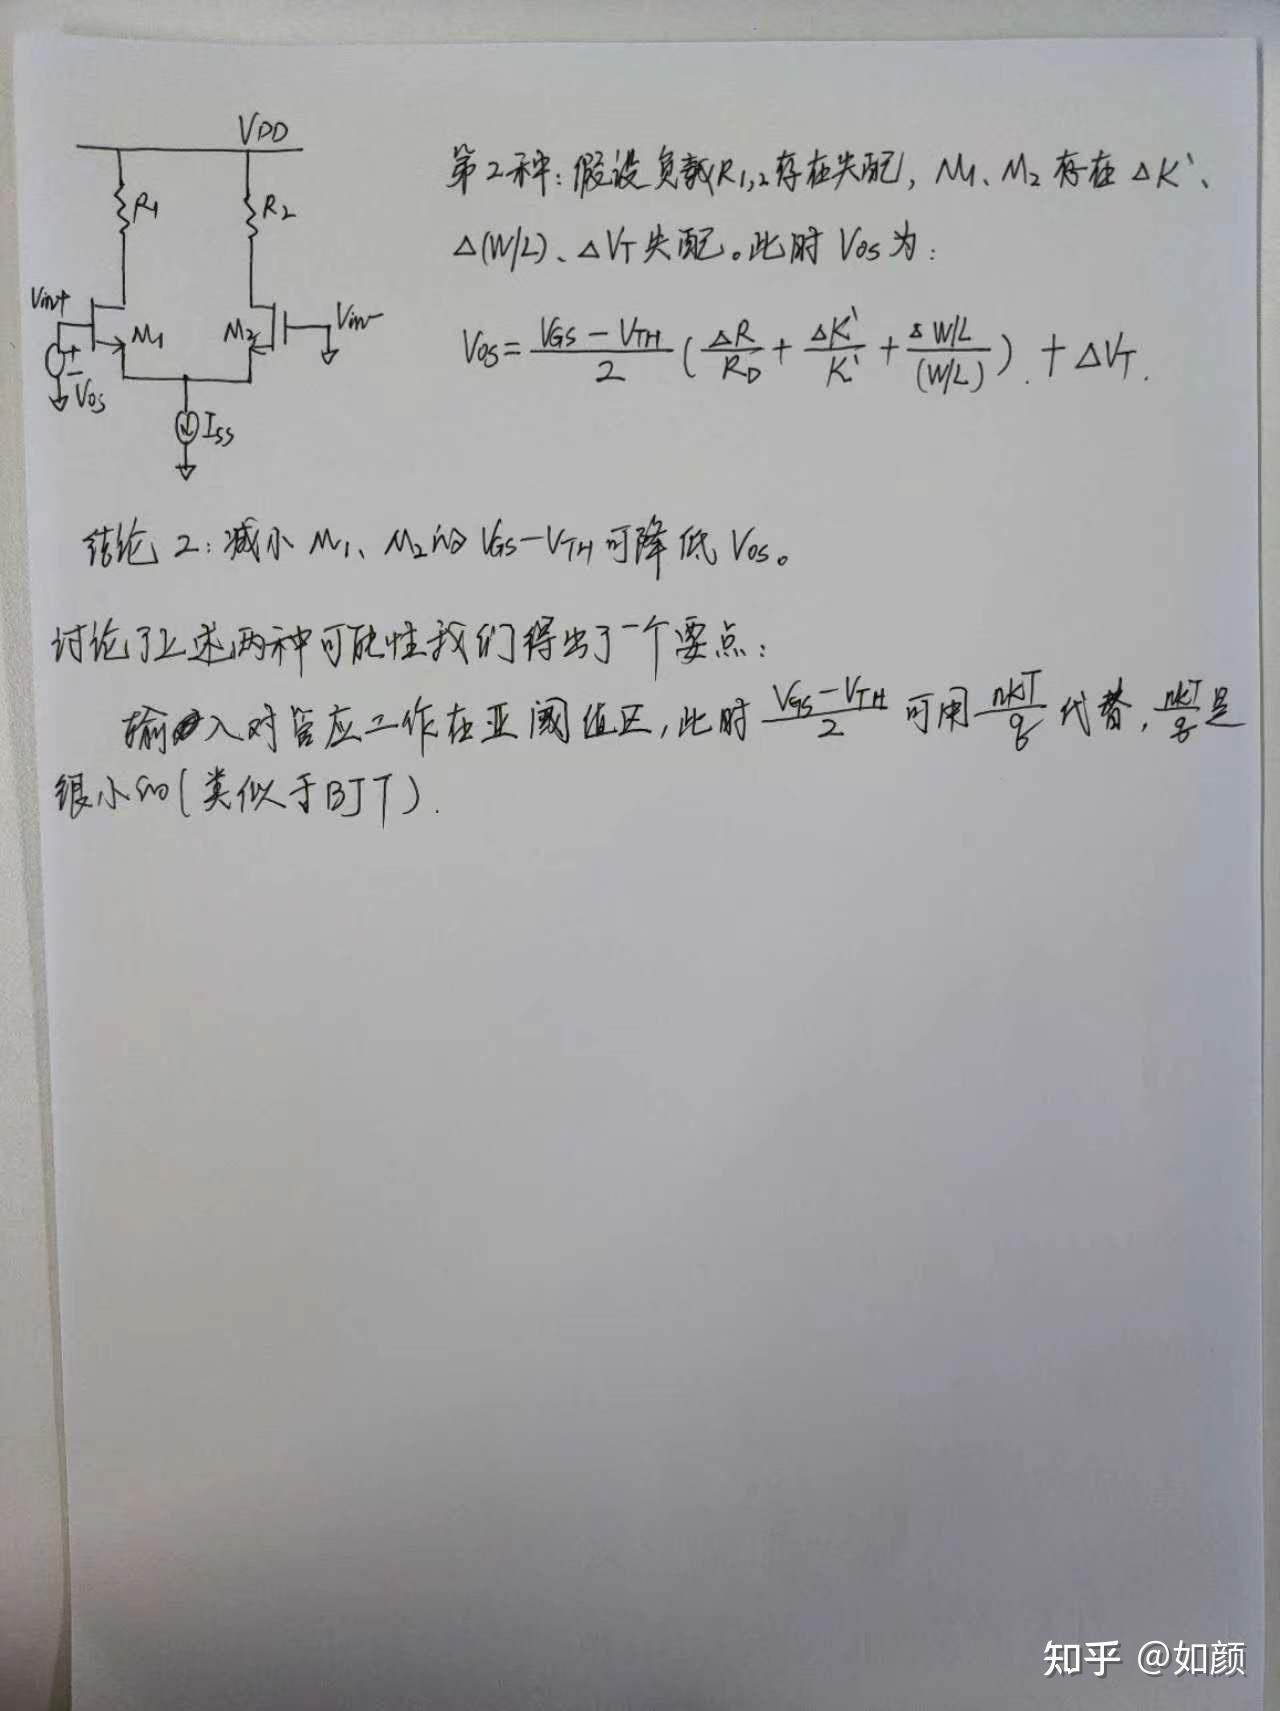 VDD
R1
R2
Vin+
M1
M2
Vin-
Vos
Iss
第2种：假设负载R1,2存在失配，M1、M2存在 ΔK'、
Δ(W/L)、ΔVT失配。此时 Vos为：
Vos = (VGS - VTH)/2 (ΔR/RD + ΔK'/K' + ΔW/L/(W/L)) + ΔVT.
结论2：减小M1、M2的VGS-VTH可降低Vos。
讨论了上述两种可能性我们得出了一个要点：
输入对管应工作在亚阈值区，此时 (VGS-VTH)/2 可用 nkT/q 代替，nkT/q是
很小的(类似于BJT).
知乎 @如颜